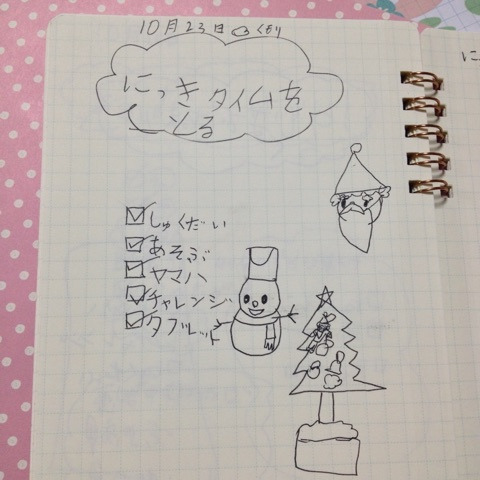 10月23日くもり
にっきタイムを
とる
しゅくだい
あそぶ
ヤマハ
チャレンジ
タブレット
に